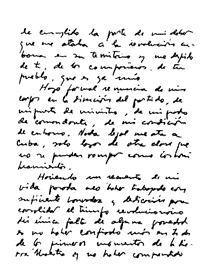 he cumplido la parte de mi deber
que me ataba a la revolución cu-
bana en su territorio y me despido
de ti, de los compañeros, de tu
pueblo, que es ya mío
Hago formal renuncia de mis
cargos en la Dirección del partido, de
mi puesto de ministro, de mi grado
de comandante, de mi condición
de cubano. Nada legal me ata a
Cuba, sólo lazos de otra clase que
no se pueden romper como los nom-
bramientos.
Haciendo un recuento de mi
vida pasada creo haber trabajado con
suficiente honradez y dedicación para
consolidar el triunfo revolucionario
Mi única falta de alguna gravedad
es no haber confiado más en ti des-
de los primeros momentos de la Sie-
rra Maestra y no haber comprendido